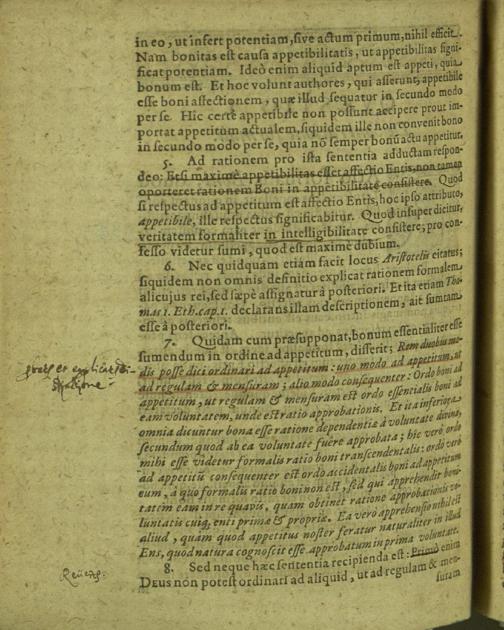 in eo, ut infert potentiam, sive actum primum, nihil efficit.
Nam bonitas est causa appetibilitatis, ut appetibilitas signi-
ficat potentiam. Ideò enim aliquid aptum est appeti, quia
bonum est. Et hoc volunt authores, qui asserunt, appetibile
esse boni affectionem, quæ illud sequatur in secundo modo
per se. Hic certè appetibile non possunt accipere prout im-
portat appetitum actualem, siquidem ille non convenit bono
in secundo modo per se, quia nõ semper bonũ actu appetitur.
5. Ad rationem pro ista sententia adductam respon-
deo: Etsi maximè appetibilitas esset affectio Entis, non tamen
oporteret rationem Boni in appetibilitate consistere. Quod
si respectus ad appetitum est affectio Entis, hoc ipso attributo,
appetibile, ille respectus significabitur. Quod insuper dicitur,
veritatem formaliter in intelligibilitate consistere, pro con-
fesso videtur sumi, quod est maximè dubium.
6. Nec quidquam etiam facit locus Aristotelis citatus;
siquidem non omnis definitio explicat rationem formalem
alicujus rei, sed sæpè assignatur à posteriori. Et ita etiam Tho-
mas 1. Eth. cap. 1. declarans illam descriptionem, ait sumtam
esse à posteriori.
7. Quidam cum præsupponat, bonum essentialiter esse
sumendum in ordine ad appetitum, disserit; Rem duobus mo-
dis posse dici ordinari ad appetitum: uno modo ad appetitum, ut
ad regulam & mensuram; alio modo consequenter: Ordo boni ad
appetitum, ut regulam & mensuram est ordo essentialis boni ad
eam voluntatem, unde est ratio approbationis. Et ita inferiora
omnia dicuntur bona esse ratione dependentiæ à voluntate divina,
secundum quod ab ea voluntate fuere approbata; hic verò ordo
mihi esse videtur formalis ratio boni transcendentalis: ordo verò
ad appetitũ consequenter est ordo accidentalis boni ad appetitum
eum, à quo formalis ratio boni non est, sed qui apprehendit boni-
tatem eam in re quavis, quam obtinet ratione approbationis vo-
luntatis cuiq; enti primæ & propriæ. Ea verò apprehensio nihil est
aliud, quàm quod appetitus noster feratur naturaliter in illud
Ens, quod natura cognoscit esse approbatum in prima voluntate.
8. Sed neque hæc sententia recipienda est: Primò enim
DEUS non potest ordinari ad aliquid, ut ad regulam & men-
suram